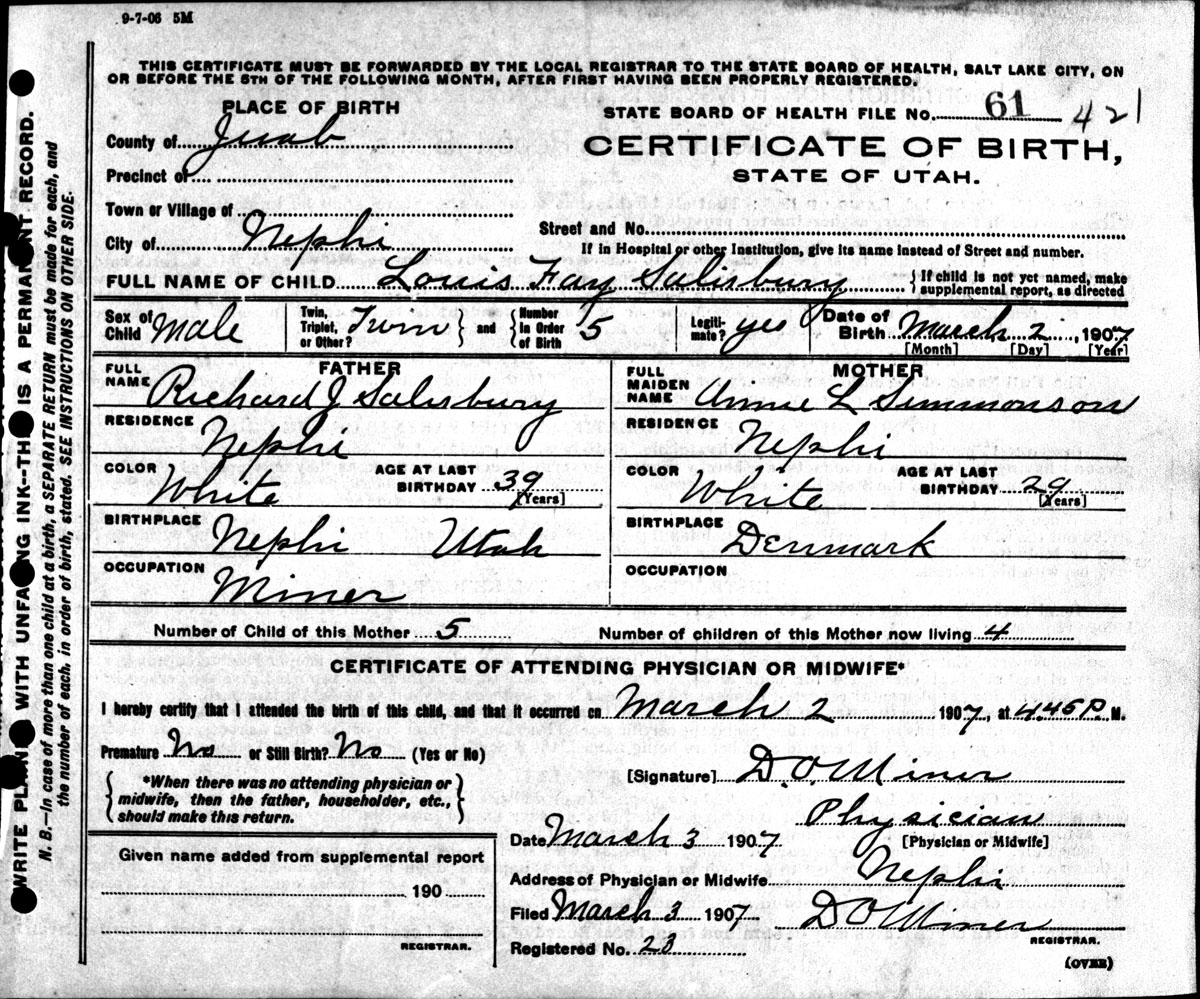 9-7-06 5M
THIS CERTIFICATE MUST BE FORWARDED BY THE LOCAL REGISTRAR TO THE STATE BOARD OF HEALTH, SALT LAKE CITY, ON
OR BEFORE THE 5TH OF THE FOLLOWING MONTH, AFTER FIRST HAVING BEEN PROPERLY REGISTERED.
PLACE OF BIRTH
STATE BOARD OF HEALTH FILE No. 61 421
County of Juab
CERTIFICATE OF BIRTH,
Precinct of
STATE OF UTAH.
Town or Village of
Street and No.
City of Nephi
If in Hospital or other Institution, give its name instead of Street and number.
FULL NAME OF CHILD Louis Fay Salisbury {If child is not yet named, make
supplemental report, as directed
Sex of Child Male Twin, Triplet, or Other? Twin } and { Number in Order of Birth 5 Legitimate? yes Date of Birth March 2, 1907
[Month] [Day] [Year]
FATHER
FULL NAME Richard J Salisbury
RESIDENCE Nephi
COLOR White AGE AT LAST BIRTHDAY 39 [Years]
BIRTHPLACE Nephi Utah
OCCUPATION Miner
MOTHER
FULL MAIDEN NAME Annie L Simmonson
RESIDENCE Nephi
COLOR White AGE AT LAST BIRTHDAY 29 [Years]
BIRTHPLACE Denmark
OCCUPATION
Number of Child of this Mother 5 Number of children of this Mother now living 4
CERTIFICATE OF ATTENDING PHYSICIAN OR MIDWIFE*
I hereby certify that I attended the birth of this child, and that it occurred on March 2 1907, at 4.45 P. M.
Premature No or Still Birth? No (Yes or No)
{*When there was no attending physician or
midwife, then the father, householder, etc.,
should make this return.}
[Signature] D. O. Miner
Physician
[Physician or Midwife]
Date March 3 1907
Address of Physician or Midwife Nephi
Filed March 3 1907 D O Miner
REGISTRAR.
Registered No. 23
(OVER)
Given name added from supplemental report
190
REGISTRAR.
WRITE PLAINLY WITH UNFADING INK--THIS IS A PERMANENT RECORD.
N. B.—In case of more than one child at a birth, a SEPARATE RETURN must be made for each, and
the number of each, in order of birth, stated. SEE INSTRUCTIONS ON OTHER SIDE.